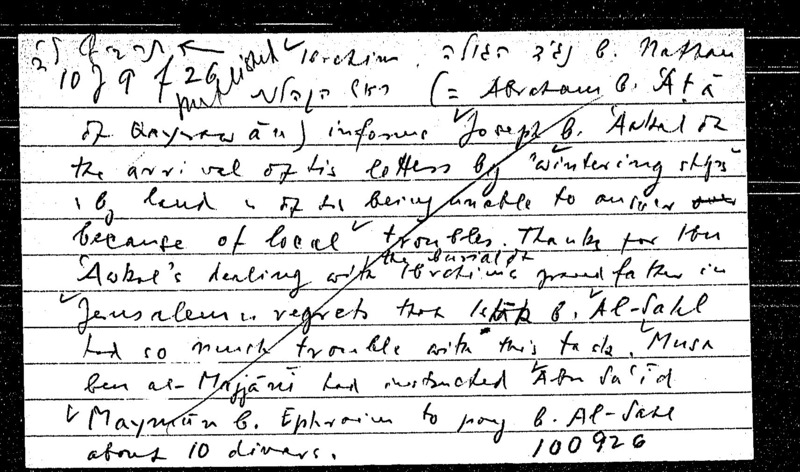 10 J 9 f 26 published Ibrahim נגיד הגולה b. Nathan
ראש הקהלות (= Abraham b. ʿAṭā
of Qayrawān) informs Joseph b. ʿAwkal of
the arrival of his letters by "wintering ships"
& by land & of his being unable to answer
because of local troubles. Thanks for Ibn
ʿAwkal's dealing with the burial of Ibrahim's grandfather in
Jerusalem & regrets that b. Al-Sahl
had so much trouble with this task. Musa
ben al-Majjānī had instructed Abu Saʿīd
Maymūn b. Ephraim to pay b. Al-Sahl
about 10 dinars.
100926